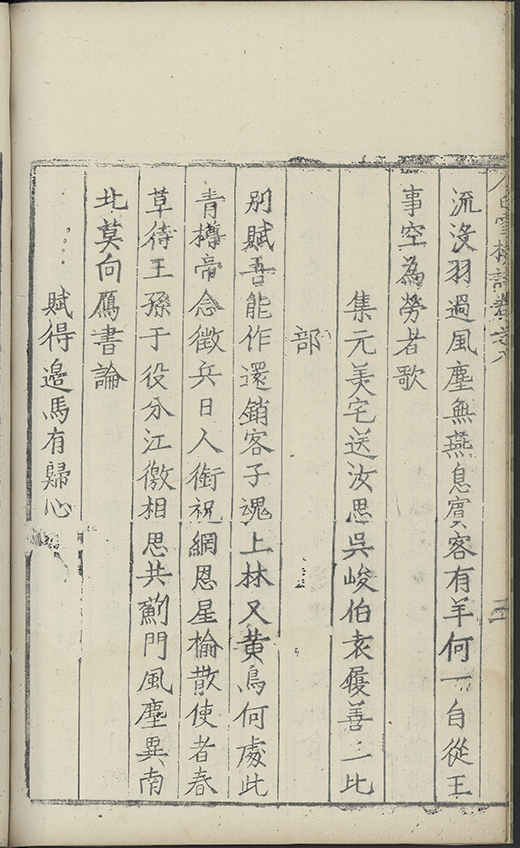 白雪樓詩卷之八
二
流沒羽過風塵無燕息賓客有羊何一自從王
事空為勞者歌
集元美宅送汝思吳峻伯袁履善三比
部
別賦吾能作還銷客子魂上林又黃鳥何處此
青樽帝念徵兵日人銜祝網恩星榆散使者春
草待王孫于役分江徼相思共薊門風塵異南
北莫向鴈書論
賦得邊馬有歸心